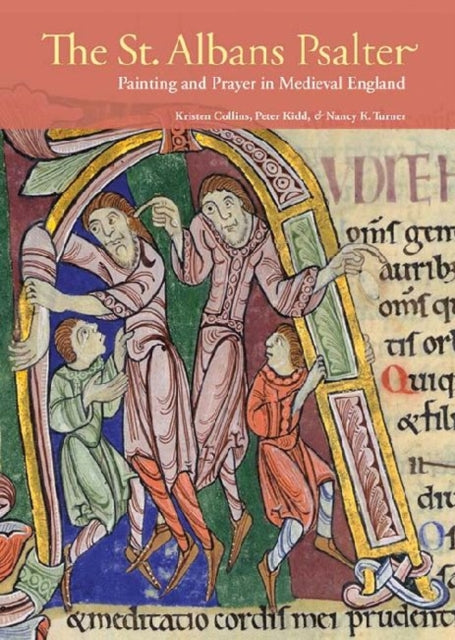 The St. Albans Psalter
Painting and Prayer in Medieval England
Kristen Collins, Peter Kidd, & Nancy K. Turner
VDITE H
om̄ſ gen
aurib;
om̄ſ q
tiſ or
Quiq
&fili
diu
&meditatio cordiſ mei prudent